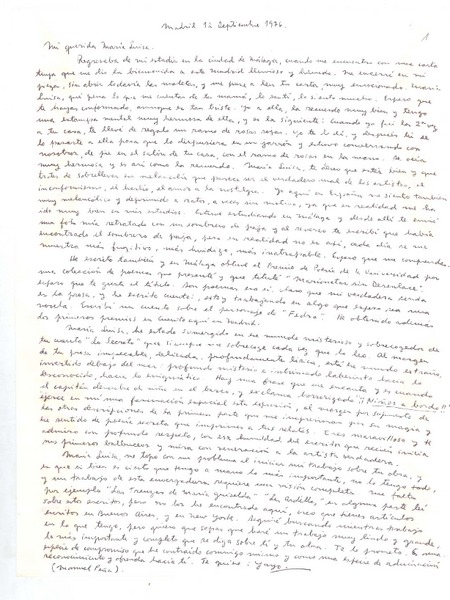 Madrid 12 Septiembre 1976.
1
Mi querida María Luisa:
Regresaba de mi estadía en la ciudad de Málaga, cuando me encuentro con una carta
tuya que me dio la bienvenida a este Madrid lluvioso y húmedo. Me encerré en mi
pieza, sin abrir todavía las maletas, y me puse a leer tu carta muy emocionado. María
Luisa, qué pena lo que me cuentas de tu mamá, lo sentí, lo siento mucho. Espero que
te hayas conformado, aunque es tan triste. Yo a ella, la recuerdo muy bien, y tengo
una estampa mental muy hermosa de ella, y es la siguiente: Cuando yo fui la 2ª vez
a tu casa, te llevé de regalo un ramo de rosas rojas. Yo te lo di, y después tú se
lo pasaste a ella para que lo dispusiera en un jarrón y estuvo conversando con
nosotros, de pie en el salón de tu casa, con el ramo de rosas en la mano. Se veía
muy hermosa y es así como la recuerdo. María Luisa, te deseo que estés bien y que
trates de sobrellevar esa melancolía que parece ser el verdadero mal de los artistas, el
inconformismo, el hastío, el amor a la nostalgia. Yo aquí en España me siento también
muy melancólico y deprimido a ratos, a veces sin motivo, ya que en realidad me ha
ido muy bien en mis estudios. Estuve estudiando en Málaga y desde allí te envié
una foto mía retratado con un sombrero de paja y al reverso te escribí que había
encontrado el sombrero de paja, pero en realidad no es así, cada día se me
muestra más fugitivo, más huidizo, más inatrapable. Espero que me comprenda.
He escrito también y en Málaga obtuve el Premio de Poesía de la Universidad por
una colección de poemas que presenté y que titulé "Marionetas sin Desenlace".
Espero que te guste el título. Son poemas en sí, claro que mi verdadera senda
es la prosa, y he escrito cuentos; estoy trabajando en algo que espero sea una
novela. Escribí un cuento sobre el personaje de "Fedra". He obtenido además
dos primeros premios en Cuento aquí en Madrid.
María Luisa, he estado sumergido en ese mundo misterioso y sobrecogedor de
tu cuento "Lo Secreto" que siempre me sobrecoge cada vez que lo leo. Al margen
de tu prosa impecable, delicada, profundamente lírica, está ese mundo extraño,
invertido debajo del mar: profundo misterio e intrincado laberinto hacia lo
desconocido, hacia lo enigmático. Hay una frase que me encanta y es cuando
el capitán descubre al niño en el barco, y exclama horrorizado "¡Niños a bordo!!"
ejerce en mí una fascinación especial esta expresión, al margen por supuesto de
las otras descripciones de la primera parte que me impresionan por su magia y
ese sentido de poesía secreta que imprimes a tus relatos. Eres maravillosa y te
admiro con profundo respeto, con esa humildad del escritor que recién inicia
sus primeros balbuceos y mira con veneración a la artista verdadera.
María Luisa, me topo con un problema al iniciar mi trabajo sobre tu obra, y
es que si bien es cierto que tengo a mano lo más importante, no lo tengo todo
y un trabajo de esta envergadura requiere una visión completa. Me falta
por ejemplo "Las Trenzas de María Griselda" "La Ardilla", en alguna parte leí
sobre estos escritos, pero no los he encontrado aquí, creo que tienes artículos
escritos en Buenos Aires, y en New York. Seguiré buscando mientras trabajo
en lo que tengo, pero quiero que sepas que haré un trabajo muy lindo y grande,
lo más importante y completo que se diga sobre ti y tu obra. Te lo prometo. Es una
especie de compromiso que he contraído conmigo mismo y como una especie de admiración
reconocimiento y ofrenda hacia ti. Te quiere: Yago.
(Manuel Peña).